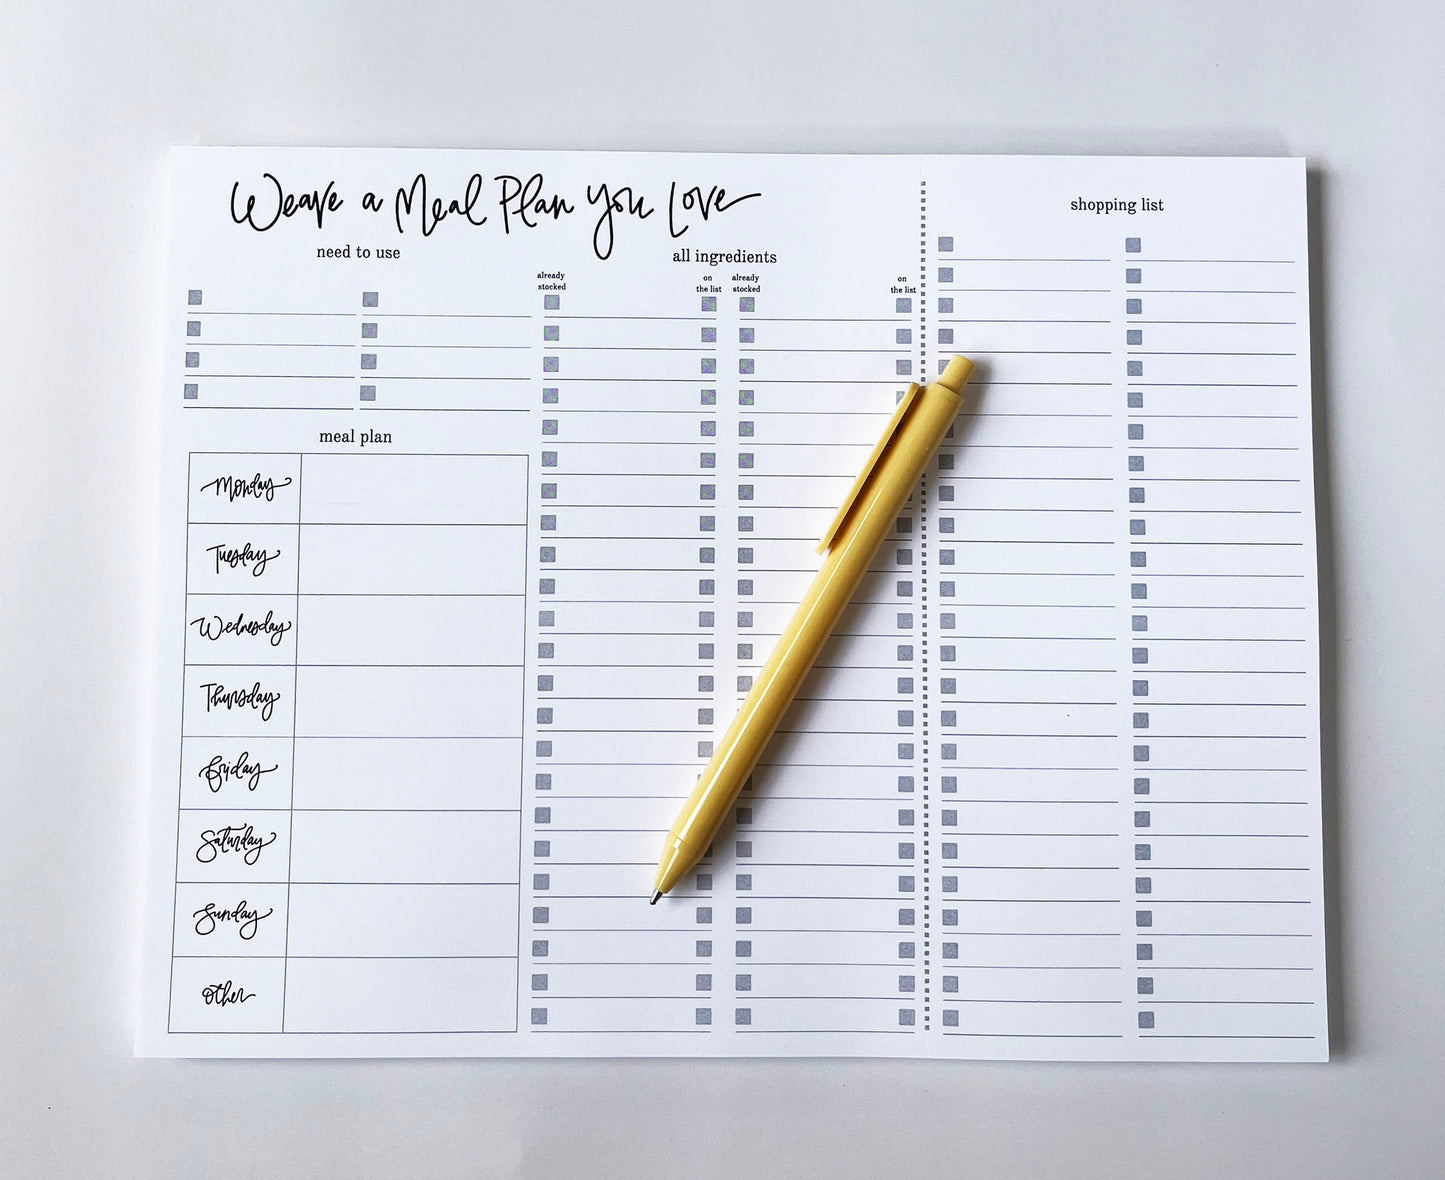 Weave a Meal Plan You Love
need to use
all ingredients
already
stocked
on
the list
already
stocked
on
the list
meal plan
Monday
Tuesday
Wednesday
Thursday
Friday
Saturday
Sunday
other
shopping list